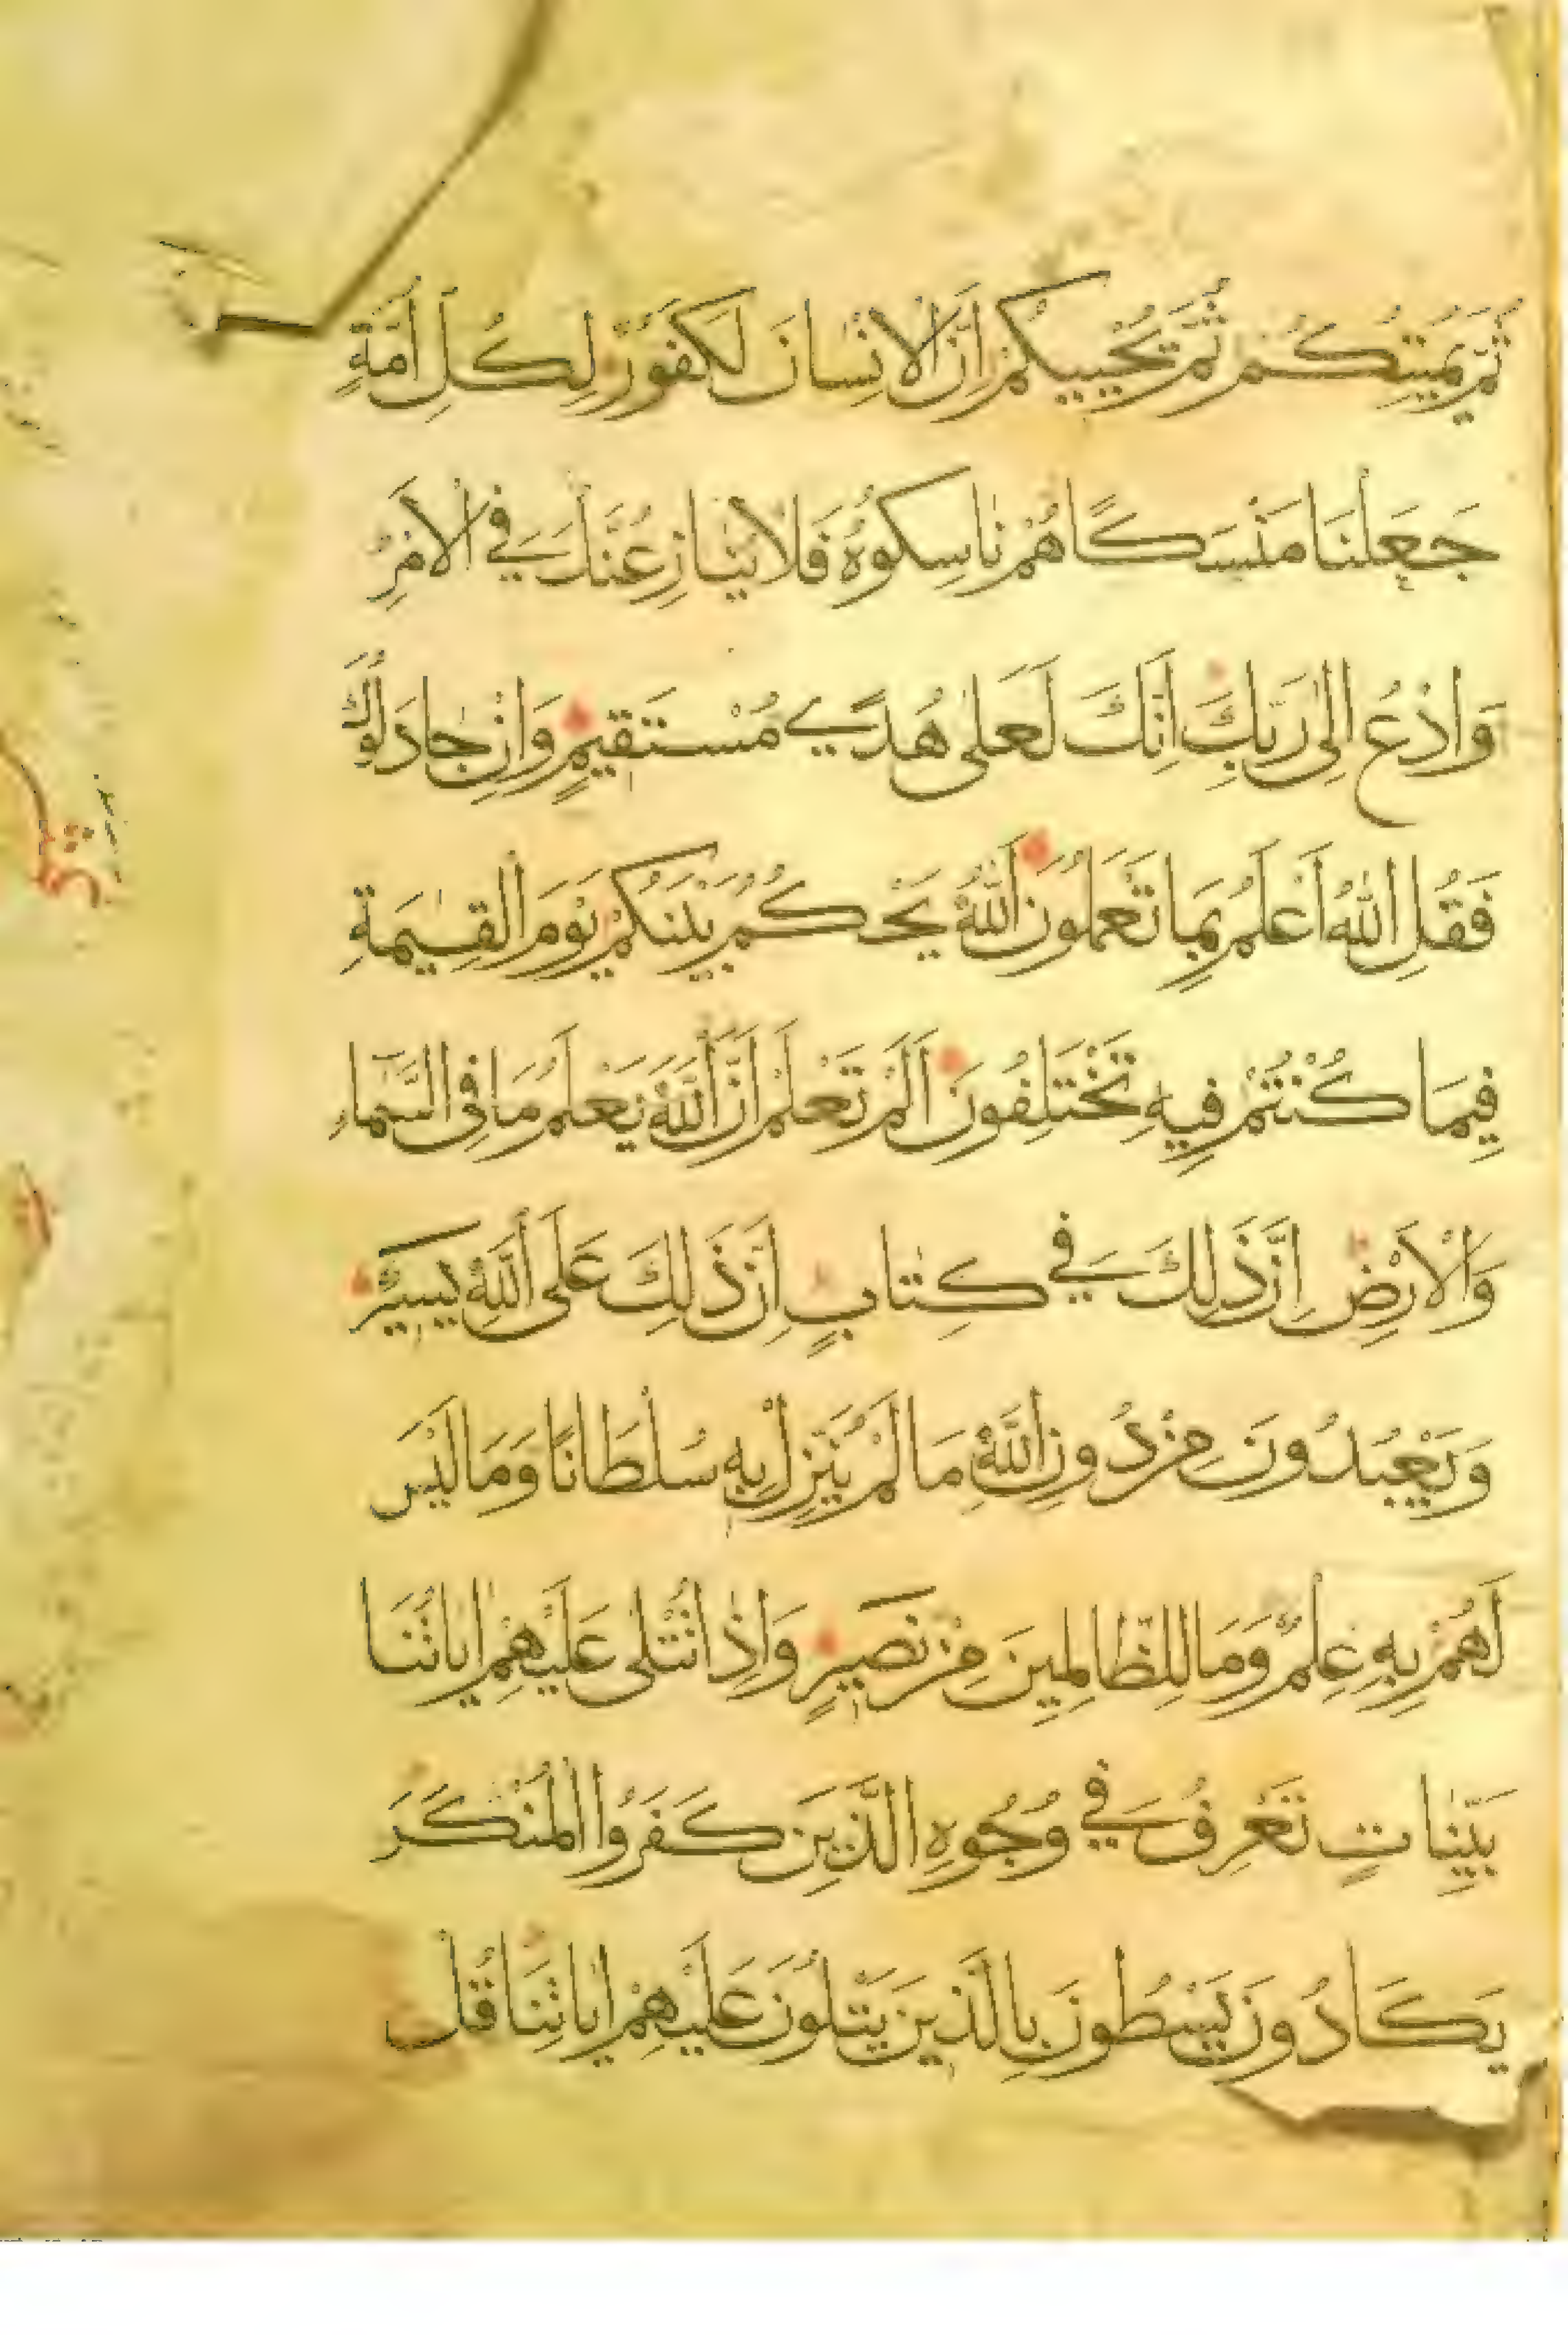 ثُمَّ يُمِيتُكُمْ ثُمَّ يُحْيِيكُمْ اِنَّ الْاِنْسَانَ لَكَفُورٌ لِكُلِّ اُمَّةٍ
جَعَلْنَا مَنْسَكًا هُمْ نَاسِكُوهُ فَلَا يُنَازِعُنَّكَ فِي الْاَمْرِ
وَادْعُ اِلٰى رَبِّكَ اِنَّكَ لَعَلٰى هُدًى مُسْتَقِيمٍ وَاِنْ جَادَلُوكَ
فَقُلِ اللّٰهُ اَعْلَمُ بِمَا تَعْمَلُونَ اَللّٰهُ يَحْكُمُ بَيْنَكُمْ يَوْمَ الْقِيٰمَةِ
فِيمَا كُنْتُمْ فِيهِ تَخْتَلِفُونَ اَلَمْ تَعْلَمْ اَنَّ اللّٰهَ يَعْلَمُ مَا فِي السَّمَاءِ
وَالْاَرْضِ اِنَّ ذٰلِكَ فِي كِتَابٍ اِنَّ ذٰلِكَ عَلَى اللّٰهِ يَسِيرٌ
وَيَعْبُدُونَ مِنْ دُونِ اللّٰهِ مَا لَمْ يُنَزِّلْ بِهِ سُلْطَانًا وَمَا لَيْسَ
لَهُمْ بِهِ عِلْمٌ وَمَا لِلظَّالِمِينَ مِنْ نَصِيرٍ وَاِذَا تُتْلٰى عَلَيْهِمْ اٰيَاتُنَا
بَيِّنَاتٍ تَعْرِفُ فِي وُجُوهِ الَّذِينَ كَفَرُوا الْمُنْكَرَ
يَكَادُونَ يَسْطُونَ بِالَّذِينَ يَتْلُونَ عَلَيْهِمْ اٰيَاتِنَا قُلْ